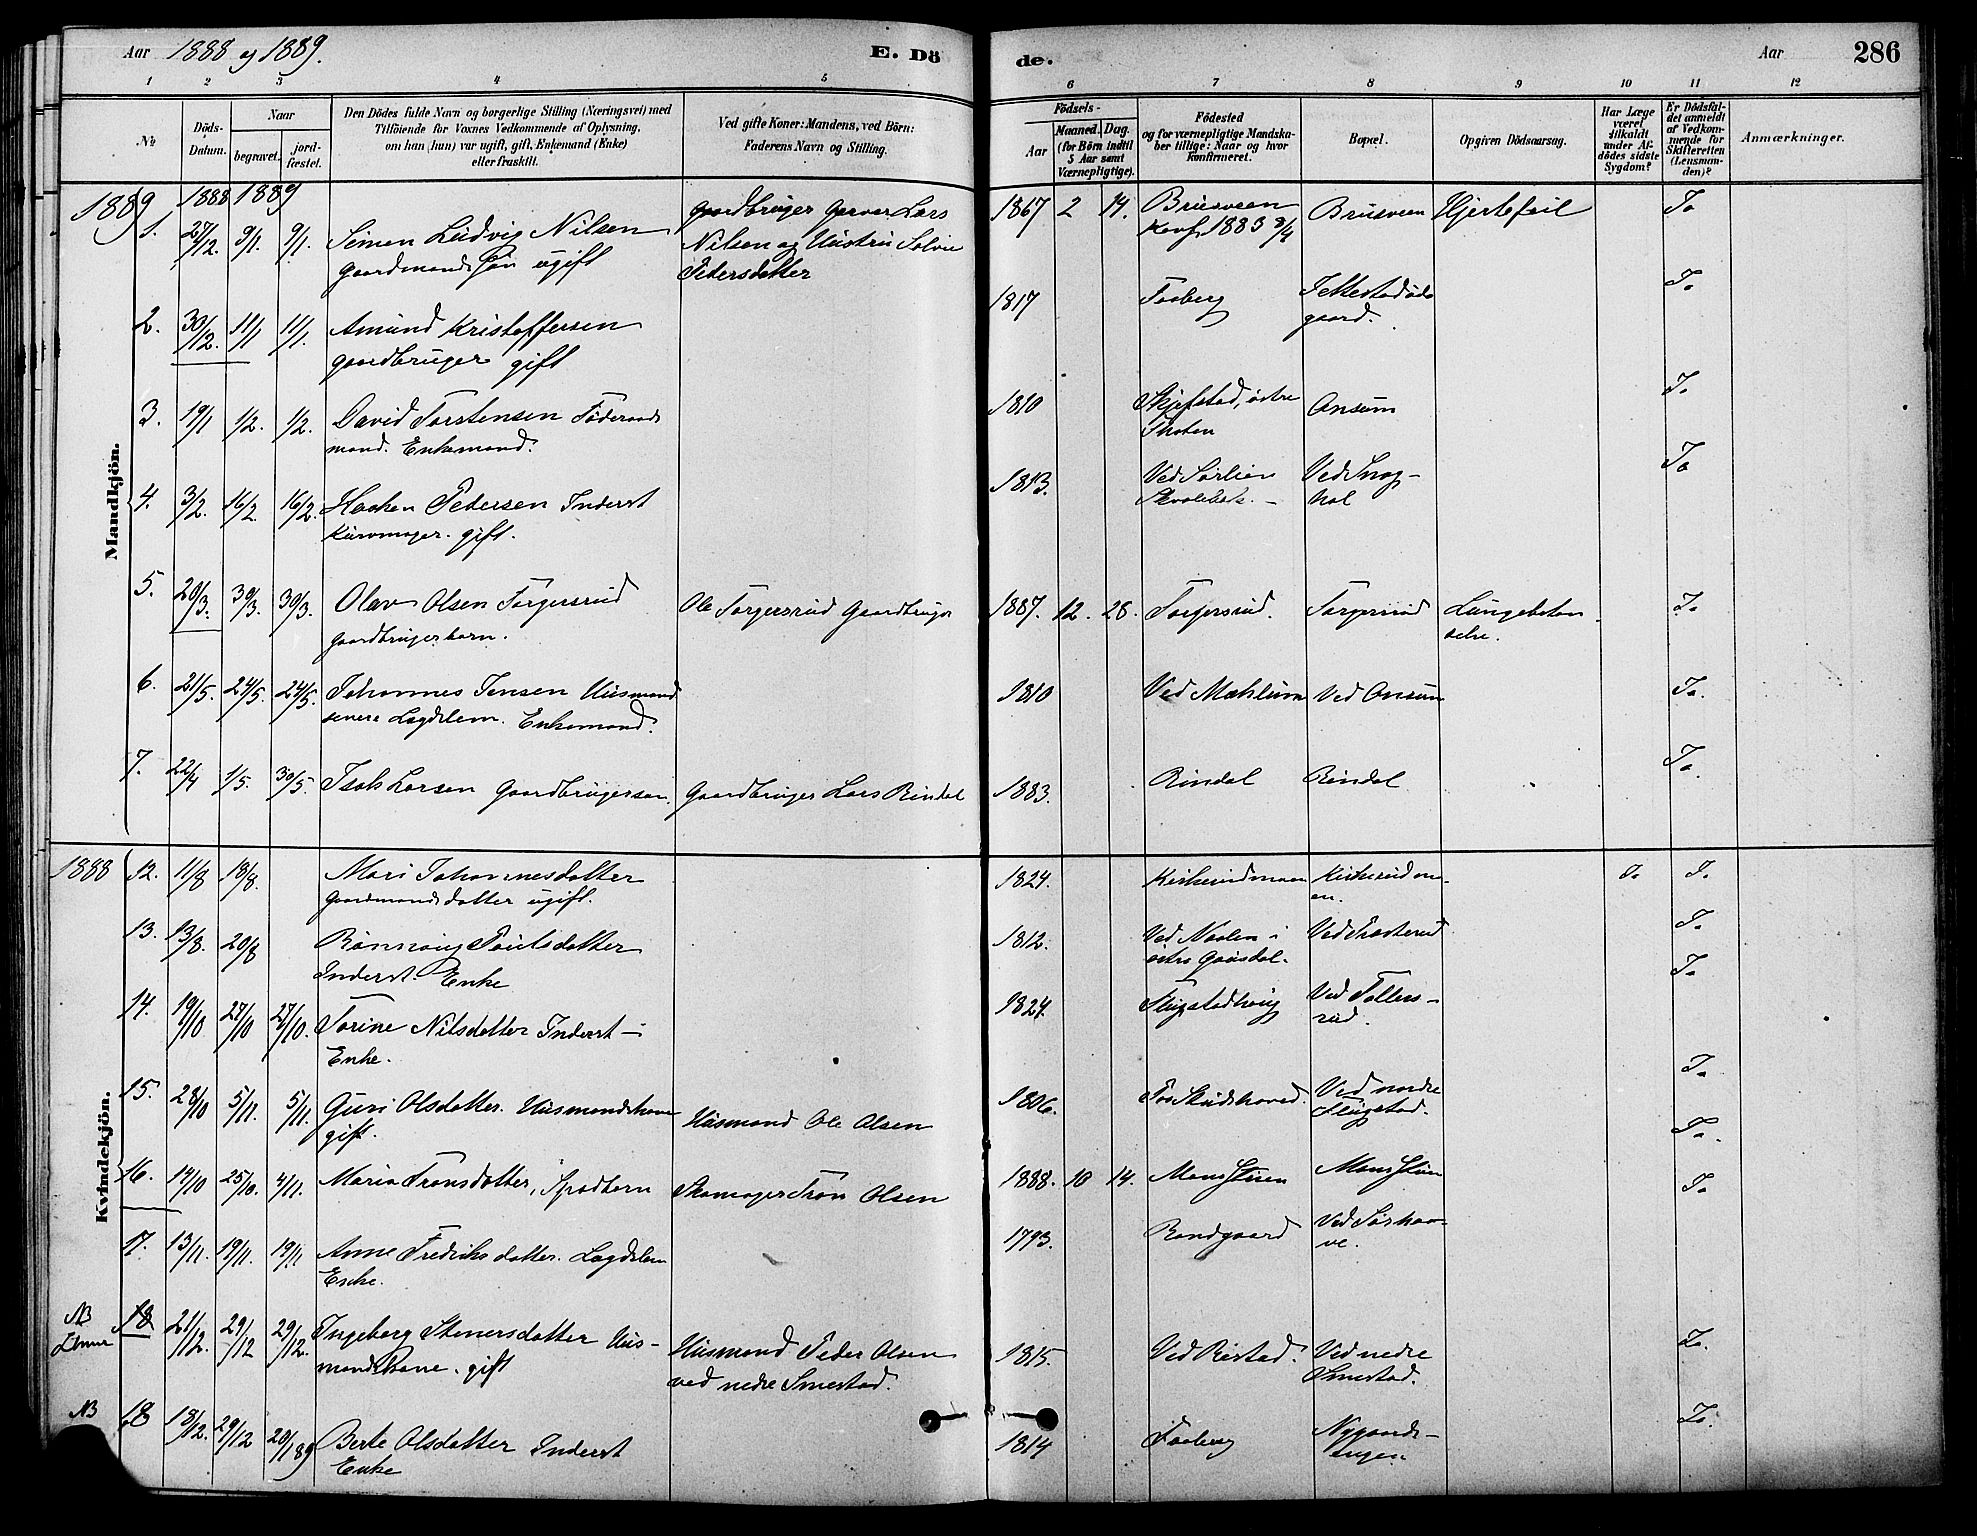 Aar 1888 og 1889.
E. Dö
de.
Aar
286
1 2 3 4 5 6 7 8 9 10 11 12
No
Döds-
Datum.
Naar
begravet.
jord-
fæstet.
Den Dödes fulde Navn og borgerlige Stilling (Næringsvei) med
Tilföiende for Voxnes Vedkommende af Oplysning,
om han (hun) var ugift, gift, Enkemand (Enke)
eller fraskilt.
Ved gifte Koner: Mandens, ved Börn:
Faderens Navn og Stilling.
Födsels-
Aar
Maaned. Dag.
(for Börn indtil
5 Aar samt
Værnepligtige).
Födested
og for værnepligtige Mandska-
ber tillige: Naar og hvor
Konfirmeret.
Bopæl.
Opgiven Dödsaarsag.
Har Læge
været
tilkaldt
under Af-
dödes sidste
Sygdom?
Er Dödsfal-
det anmeldt
af Vedkom-
mende for
Skifteretten
(Lensman-
den)?
Anmærkninger.
Mandkjön.
1889 1888 1889
1. 27/12. 9/1. 9/1. Simen Ludvig Nilsen
Gaardmands Søn ugift
Gaardbruger Garver Lars
Nilsen og Hustru Solvie
Pedersdatter
1867 2 14. Brusveen
Konf. 1883
Brusveen Hjertefeil Ja
2. 30/12. 11/1 11/1. Amund Kristoffersen
gaardbruger gift
1817 Faaberg
gaard. Ja
3. 19/1 1/2. 1/2. David Torstensen Föderaads
mand. Enkemand.
1810 Skjefstad, östre
Thoten
Onsum Ja
4. 3/2. 16/2 16/2. Haaken Pedersen Inderst
Kurvmager. gift.
1813. Ved Sørlien
Ja
5. 20/3. 30/3. 30/3. Olav Olsen Torgersrud
gaardbrugerbarn.
Ole Torgersrud Gaardbruger
1887. 12. 28. Torgersrud. Torgersrud Lungebeten
delse. Ja
6. 21/5. 24/5. 24/5. Johannes Jensen Husmand
senere Lægdslem. Enkemand.
1810 Ved Mæhlum Ved Onsum Ja.
7. 22/4 1/5. 30/5. Isak Larsen Gaardbrugersøn. Gaardbruger Lars Rindal
1883. Rindal Rindal Ja.
Kvindekjön.
1888 12. 11/8 18/8. Mari Johannesdatter
Gaardmandsdatter ugift.
1824. Kirkerudmoen Kirkerudmo-
en. Ja Ja
13. 13/8. 20/8 Rønnaug Poulsdatter
Inderst. Enke
1812. Ved Noolen i
östre Gausdal. Ja
14. 19/10 27/10 27/10. Torine Nilsdatter Inderst
Enke.
1824. Flugstadhoug Ved Tollers-
rud. Ja
15. 28/10 5/11. 5/11. Guri Olsdatter. Husmandskone
gift.
Husmand Ole Olsen
1806. Ved nordre
Flugstad. Ja
16. 14/10 25/10. 4/11. Maria Tronsdatter, Spædbarn Skomager Tron Olsen
1888. 10 14. Ja.
17. 13/11. 19/11. 19/11 Anne Fredriksdatter. Lægdslem
Enke.
1793. Randgaard Ved Sørhaa-
ve. Ja
NB
18 21/12. 29/12 29/12. Ingeborg Stenersdatter Hus-
mandskone. gift
Husmand Peder Olsen
ved nedre Smestad.
1815. Ved Ristad. Ved nedre
Smestad. Ja.
NB 18 18/12. 29/12 20/1 89 Berte Olsdatter Inderst
Enke
1814 Faaberg Nygaards-
engen Ja.